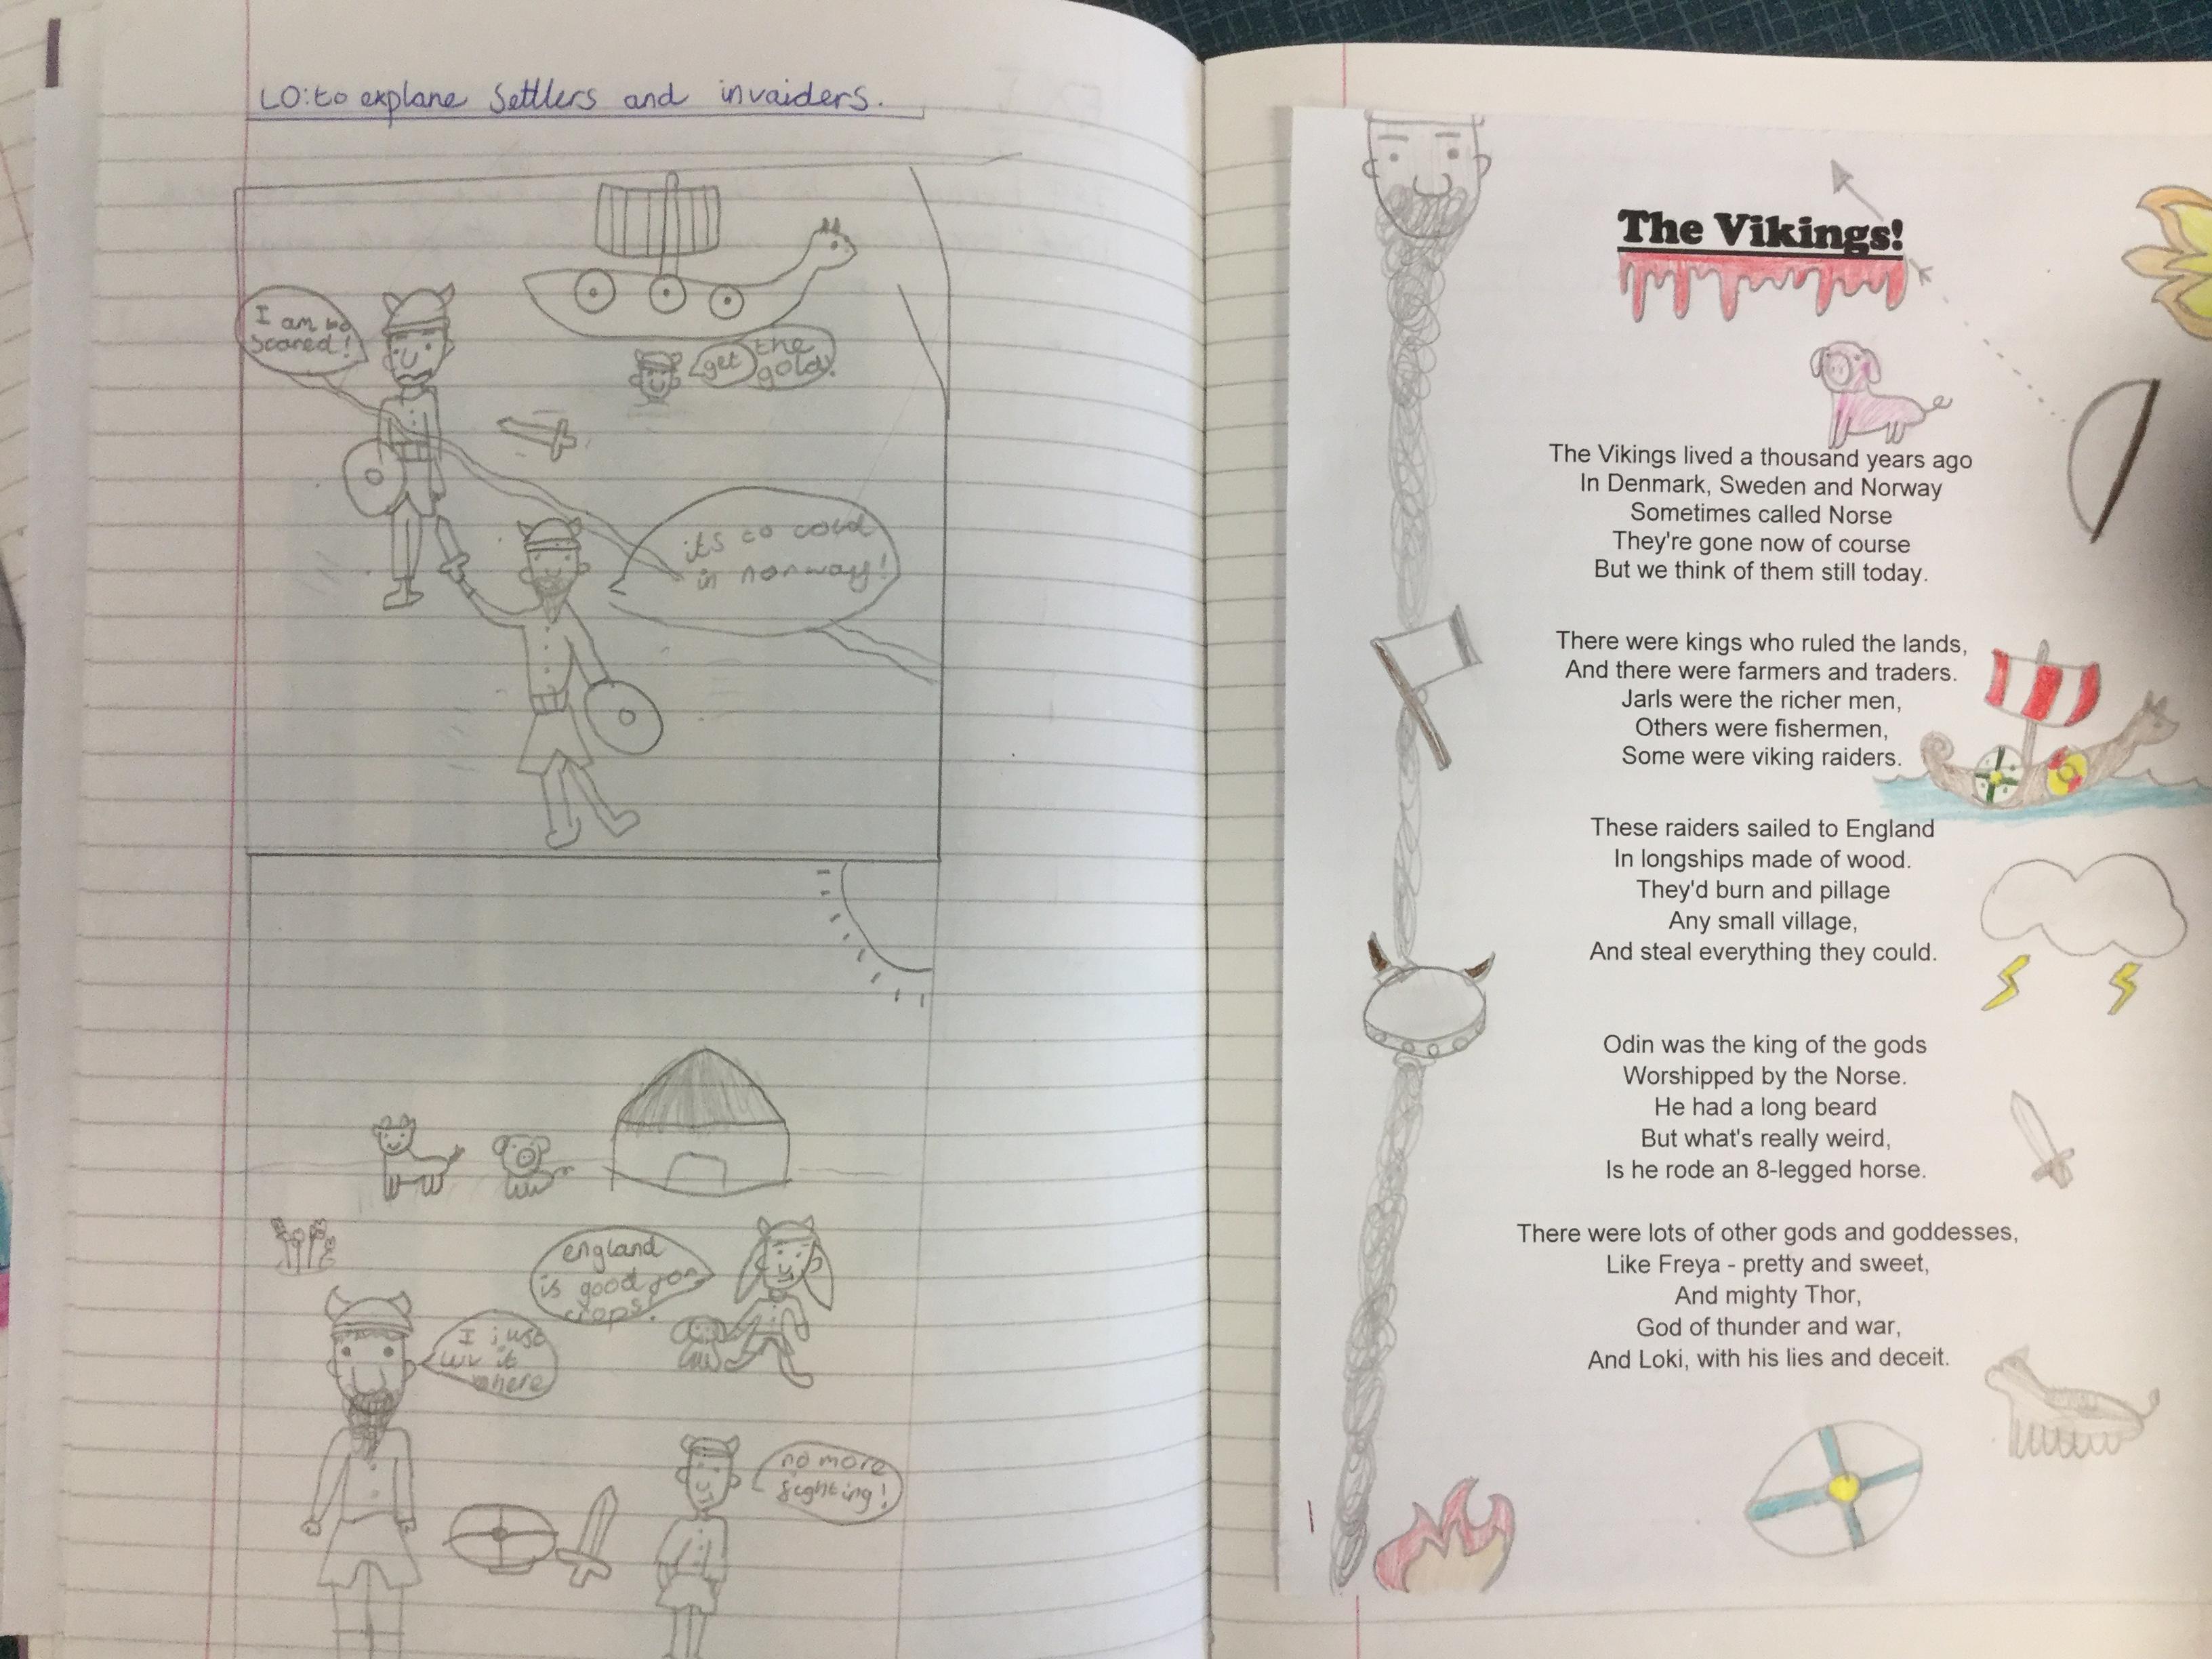 LO: to explane Settlers and invaiders.
I am so
scared!
get the
gold!
its so cold
in norway!
england
is good for
crops.
I just
luv it
here
no more
fighting!
The Vikings!
The Vikings lived a thousand years ago
In Denmark, Sweden and Norway
Sometimes called Norse
They're gone now of course
But we think of them still today.
There were kings who ruled the lands,
And there were farmers and traders.
Jarls were the richer men,
Others were fishermen,
Some were viking raiders.
These raiders sailed to England
In longships made of wood.
They'd burn and pillage
Any small village,
And steal everything they could.
Odin was the king of the gods
Worshipped by the Norse.
He had a long beard
But what's really weird,
Is he rode an 8-legged horse.
There were lots of other gods and goddesses,
Like Freya - pretty and sweet,
And mighty Thor,
God of thunder and war,
And Loki, with his lies and deceit.